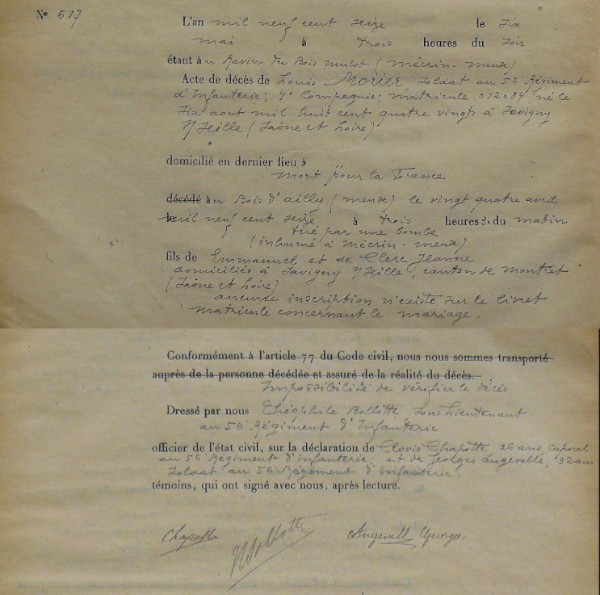 N° 577
L'an mil neuf cent seize le six
mai à trois heures du soir
étant au Ravin du Bois mulot (mécrin-meuse)
Acte de décès de Louis Morier soldat au 56 Régiment
d'Infanterie; 4e Compagnie; matricule 012089 né le
six aout mil huit cent quatre vingts à Savigny
s/Seille (Saône et Loire)
domicilié en dernier lieu à
mort "pour la France
décédé au Bois d'ailly (meuse) le vingt quatre avril
le mil neuf cent seize à trois heures du matin
tué par une bombe
(inhumé à mécrin-meuse)
fils de Emmanuel et de Clerc Jeanne
domiciliés à Savigny s/Seille, canton de montret
(Saône et Loire)
aucune inscription n'existe sur le livret
matricule concernant le mariage.
Conformément à l'article 77 du Code civil, nous nous sommes transporté
auprès de la personne décédée et assuré de la réalité du décès.
Impossibilité de vérifier le décès
Dressé par nous Théophile Bollotte sous lieutenant
au 56 Régiment d'Infanterie
officier de l'état civil, sur la déclaration de Clovis Chapotte 26 ans Caporal
au 56 Régiment d'Infanterie et de Georges Augevelle, 32 ans
Soldat au 56 Régiment d'Infanterie.
témoins, qui ont signé avec nous, après lecture.
Chapotte Bollotte Georges